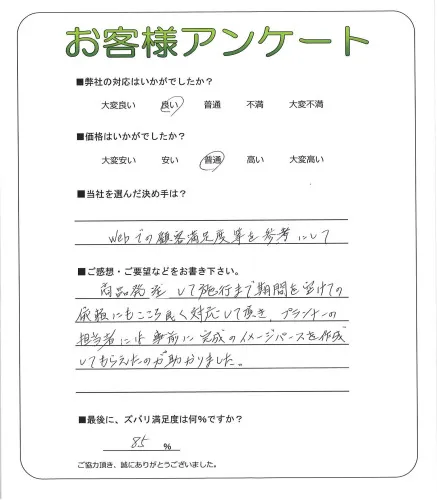 お客様アンケート
■弊社の対応はいかがでしたか？
大変良い 良い 普通 不満 大変不満
■価格はいかがでしたか？
大変安い 安い 普通 高い 大変高い
■当社を選んだ決め手は？
Webでの顧客満足度等を参考にして
■ご感想・ご要望などをお書き下さい。
商品発注して施行まで期間を空けての
依頼にもこころ良く対応して頂き、プランナーの
担当者には事前に完成のイメージパースを作成
してもらえたのが助かりました。
■最後に、ズバリ満足度は何%ですか？
85 %
ご協力頂き、誠にありがとうございました。